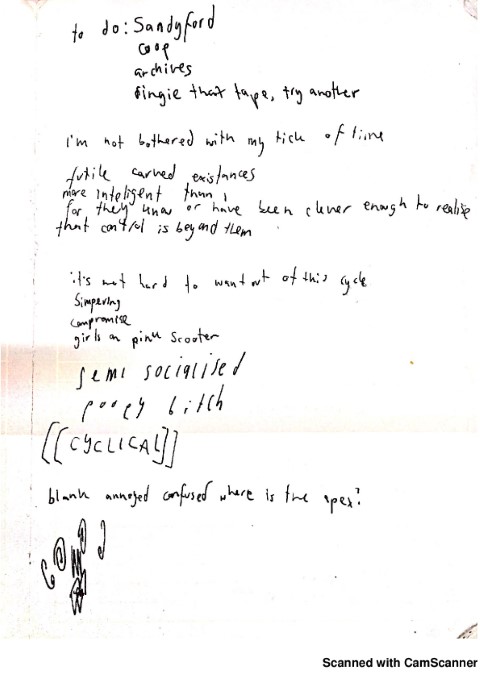 to do: Sandyford
coop
archives
dingie that tape, try another
i'm not bothered with my tick of time
futile carved existances
more inteligent than i
for they know or have been clever enough to realise
that control is beyond them
it's not hard to want out of this cycle
Simpering
compromise
girls on pink scooter
semi socialised
bitch
[[CYCLICAL]]
blank annoyed confused where is the apex?
Scanned with CamScanner